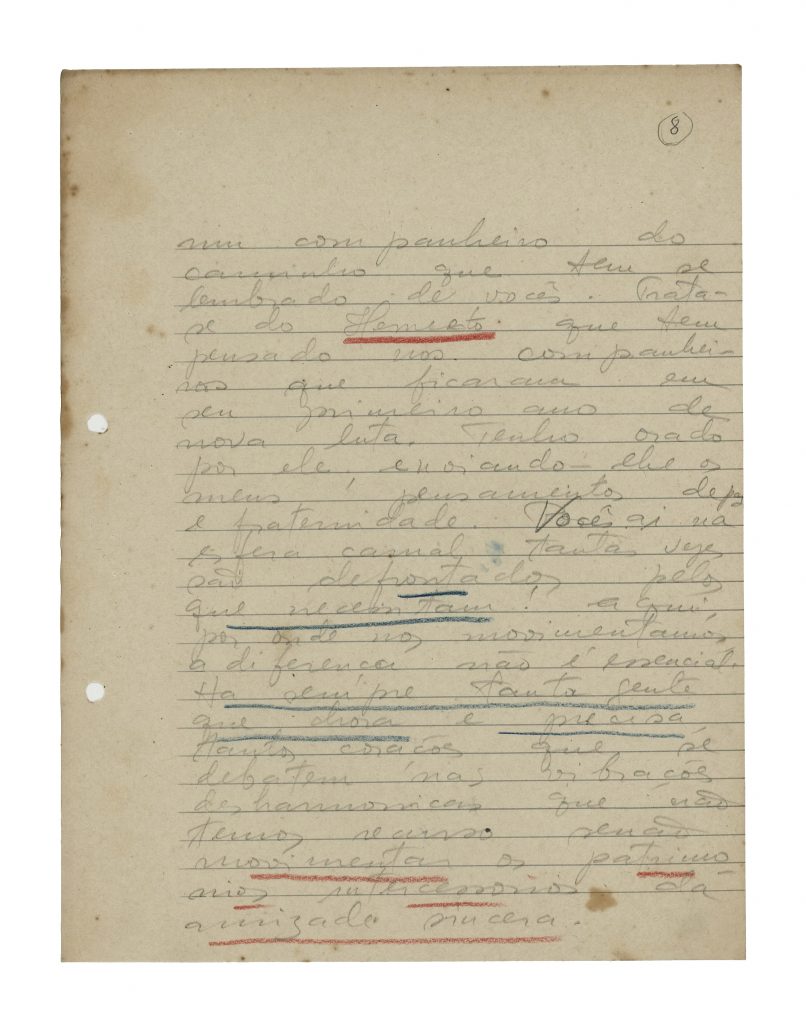 8
um companheiro do
caminho que tem se
lembrado de vocês. Trata-
se do que tem
pensado nos companhei-
ros que ficaram em
seu primeiro ano de
nova luta. Tenho orado
por ele, enviando-lhe os
meus pensamentos de paz
e fraternidade. Vocês ai na
esfera carnal, tantas vezes
são defrontados pelos
que necessitam! aqui,
por onde nos movimentamos
a diferença não é essencial.
Ha sempre tanta gente
que chora e precisa,
tantos corações que se
debatem nas vibrações
desharmonicas que não
temos recurso senão
movimentar os patrimo
nios intercessorios da
amizade sincera.